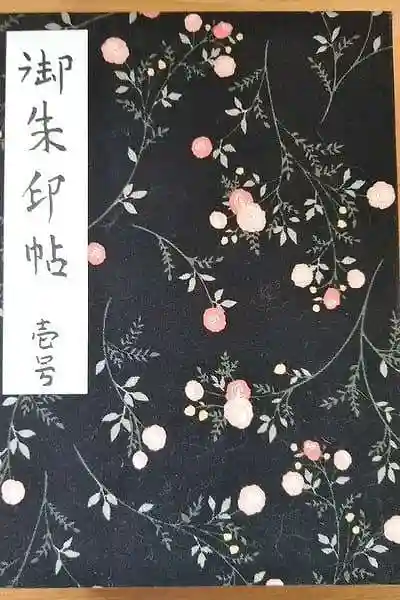 御朱印帖
壱号